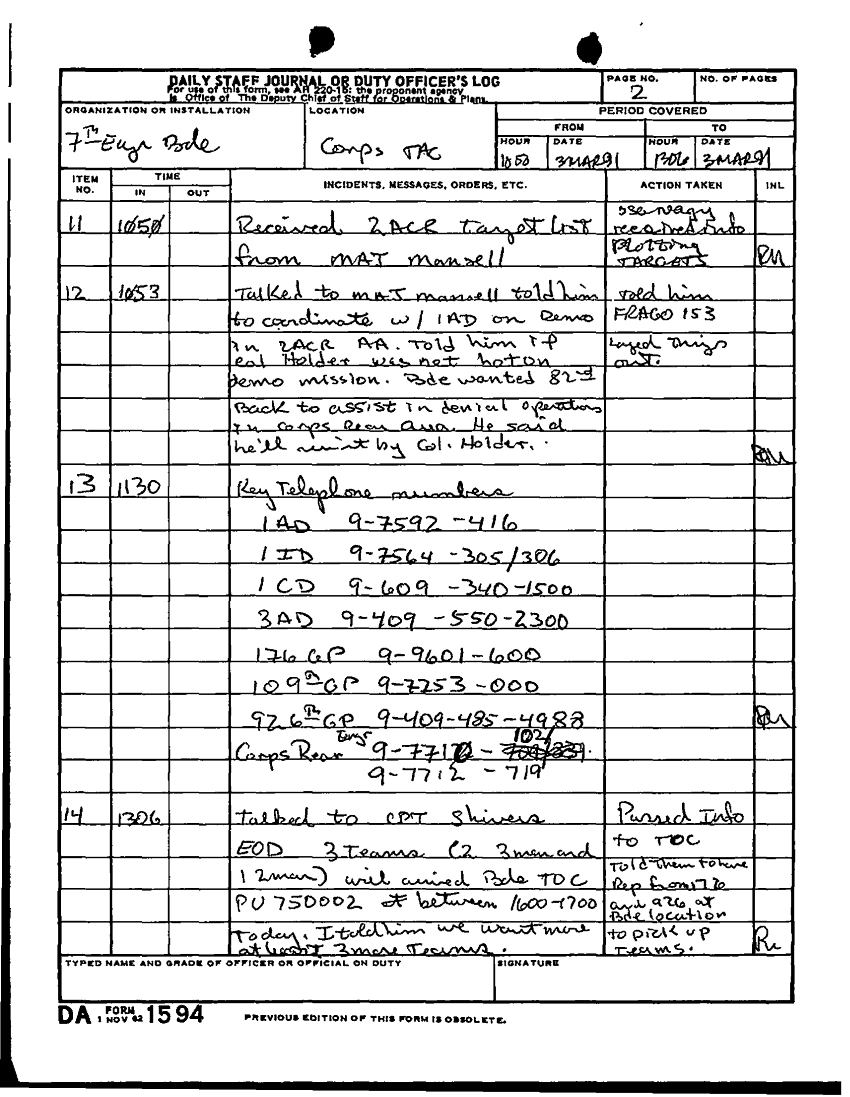 DAILY STAFF JOURNAL OR DUTY OFFICER'S LOG
For use of this form, see AR 220-15; the proponent agency
is Office of The Deputy Chief of Staff for Operations & Plans.
PAGE NO.
2
NO. OF PAGES
ORGANIZATION OR INSTALLATION
7th Engr Bde
LOCATION
Corps TAC
PERIOD COVERED
FROM
TO
HOUR
1050
DATE
3MAR91
HOUR
1306
DATE
3MAR91
ITEM NO.
TIME
IN
OUT
INCIDENTS, MESSAGES, ORDERS, ETC.
ACTION TAKEN
INL
11 1050 Received 2ACR target list
from MAJ Mansell
received info
Plotting
TARGETS
12 1053 Talked to MAJ Mansell told him
to coordinate w/ 1AD on Demo
in 2ACR AA. Told him if
Col Holder was not hot on
demo mission. Bde wanted 82nd
Back to assist in denial operations
in Corps Rear Area. He said
he'll run it by Col. Holder.
Told him
FRAGO 153
Layed things
out.
13 1130 Key Telephone numbers
1AD 9-7592-416
1ID 9-7564-305/306
1CD 9-609-340-1500
3AD 9-409-550-2300
176 GP 9-9601-600
109th GP 9-7253-000
926th GP 9-409-485-4988
Corps Rear Engr 9-7712 - 102/
9-7712 - 719
14 1306 Talked to CPT Shivers
EOD 3 Teams (2 3man and
1 2man) will arrived Bde TOC
PU 750002 at between 1600-1700
Today. I told him we want more
at least 3 more Teams.
Passed Info
to TOC
Told Them to have
Rep from 176
and 926 at
Bde location
to pick up
Teams.
TYPED NAME AND GRADE OF OFFICER OR OFFICIAL ON DUTY
SIGNATURE
DA FORM 1594
1 NOV 62
PREVIOUS EDITION OF THIS FORM IS OBSOLETE.